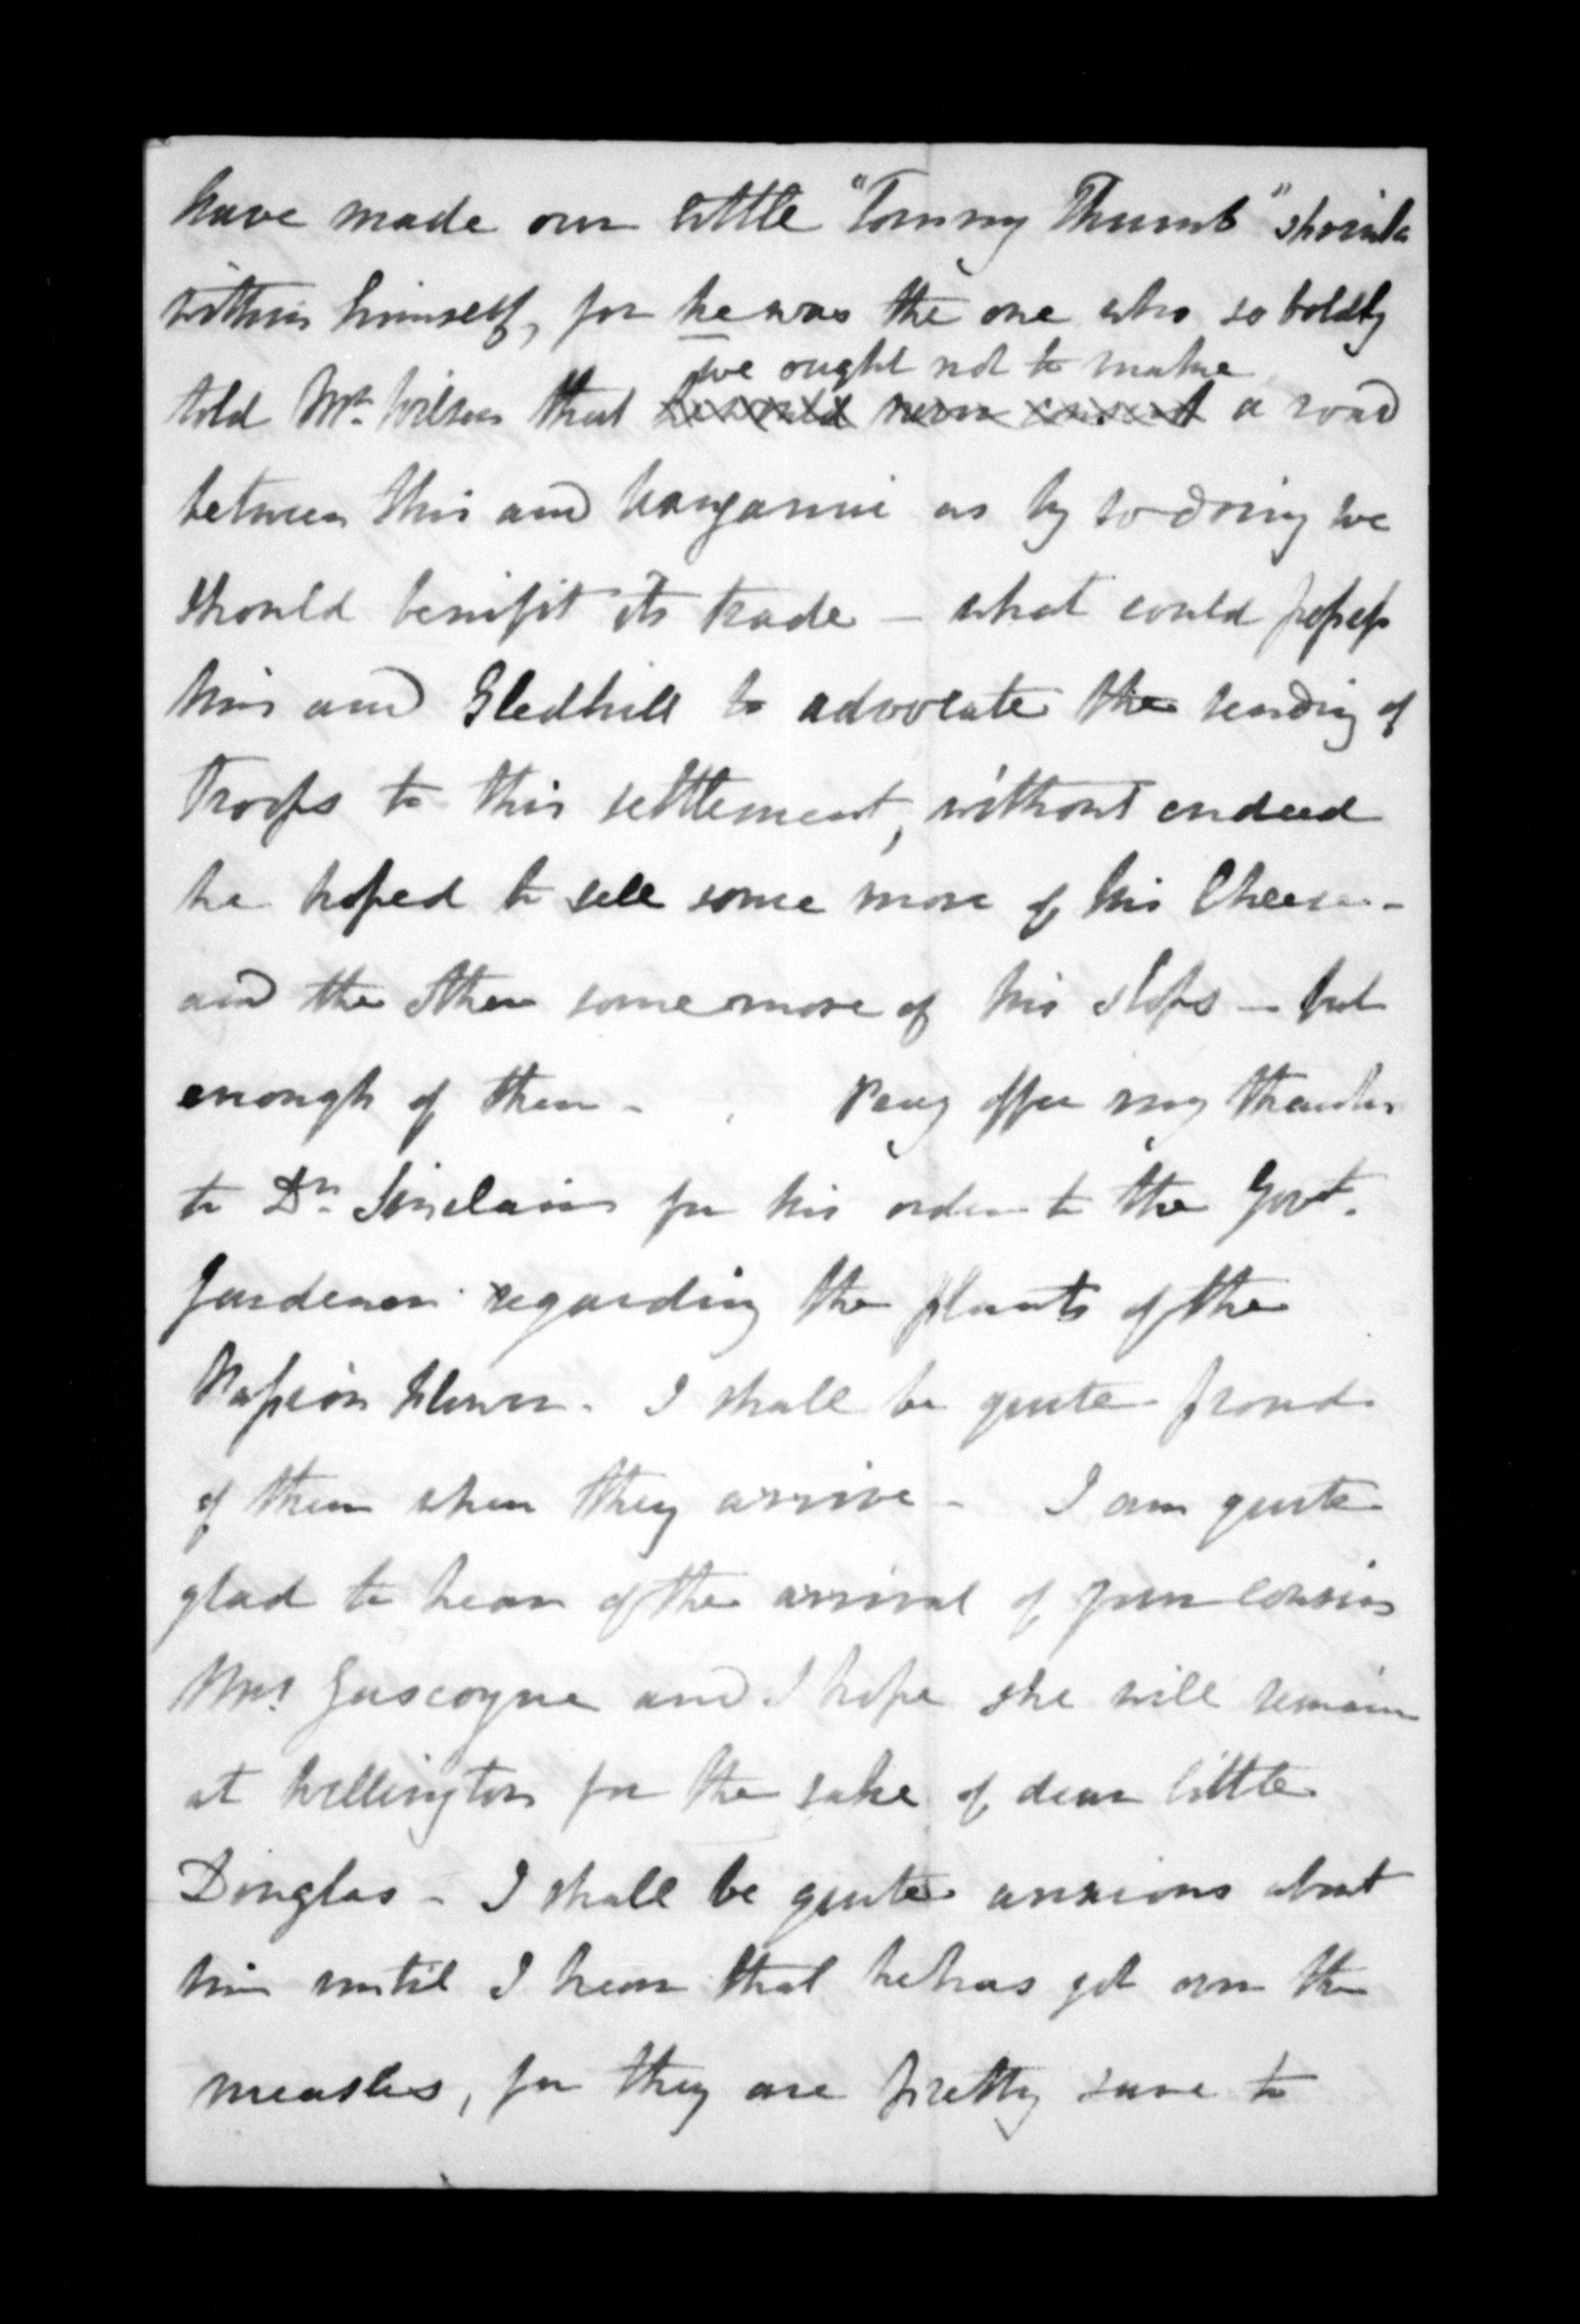 have made our little "Tommy Thumb" shrink
within himself, for he was the one who so boldly
we ought not to make
told Mr. Wilson that he would never consent a road
between this and Wanganui as by so doing we
should benifit its trade — what could possess
him and Gledhill to advocate the sending of
troops to this settlement, without indeed
he hoped to sell some more of his Cheese -
and the other some more of his slops — but
enough of them - Pray offer my thanks
to Dr. Sinclair for his order to the Govt.
Gardener regarding the plants of the
Passion flower - I shall be quite proud
of them when they arrive - I am quite
glad to hear of the arrival of your cousin
Mrs. Gascoyne and I hope she will remain
at Wellington for the sake of dear little
Douglas - I shall be quite anxious about
him until I hear that he has got over the
measles, for they are pretty sure to